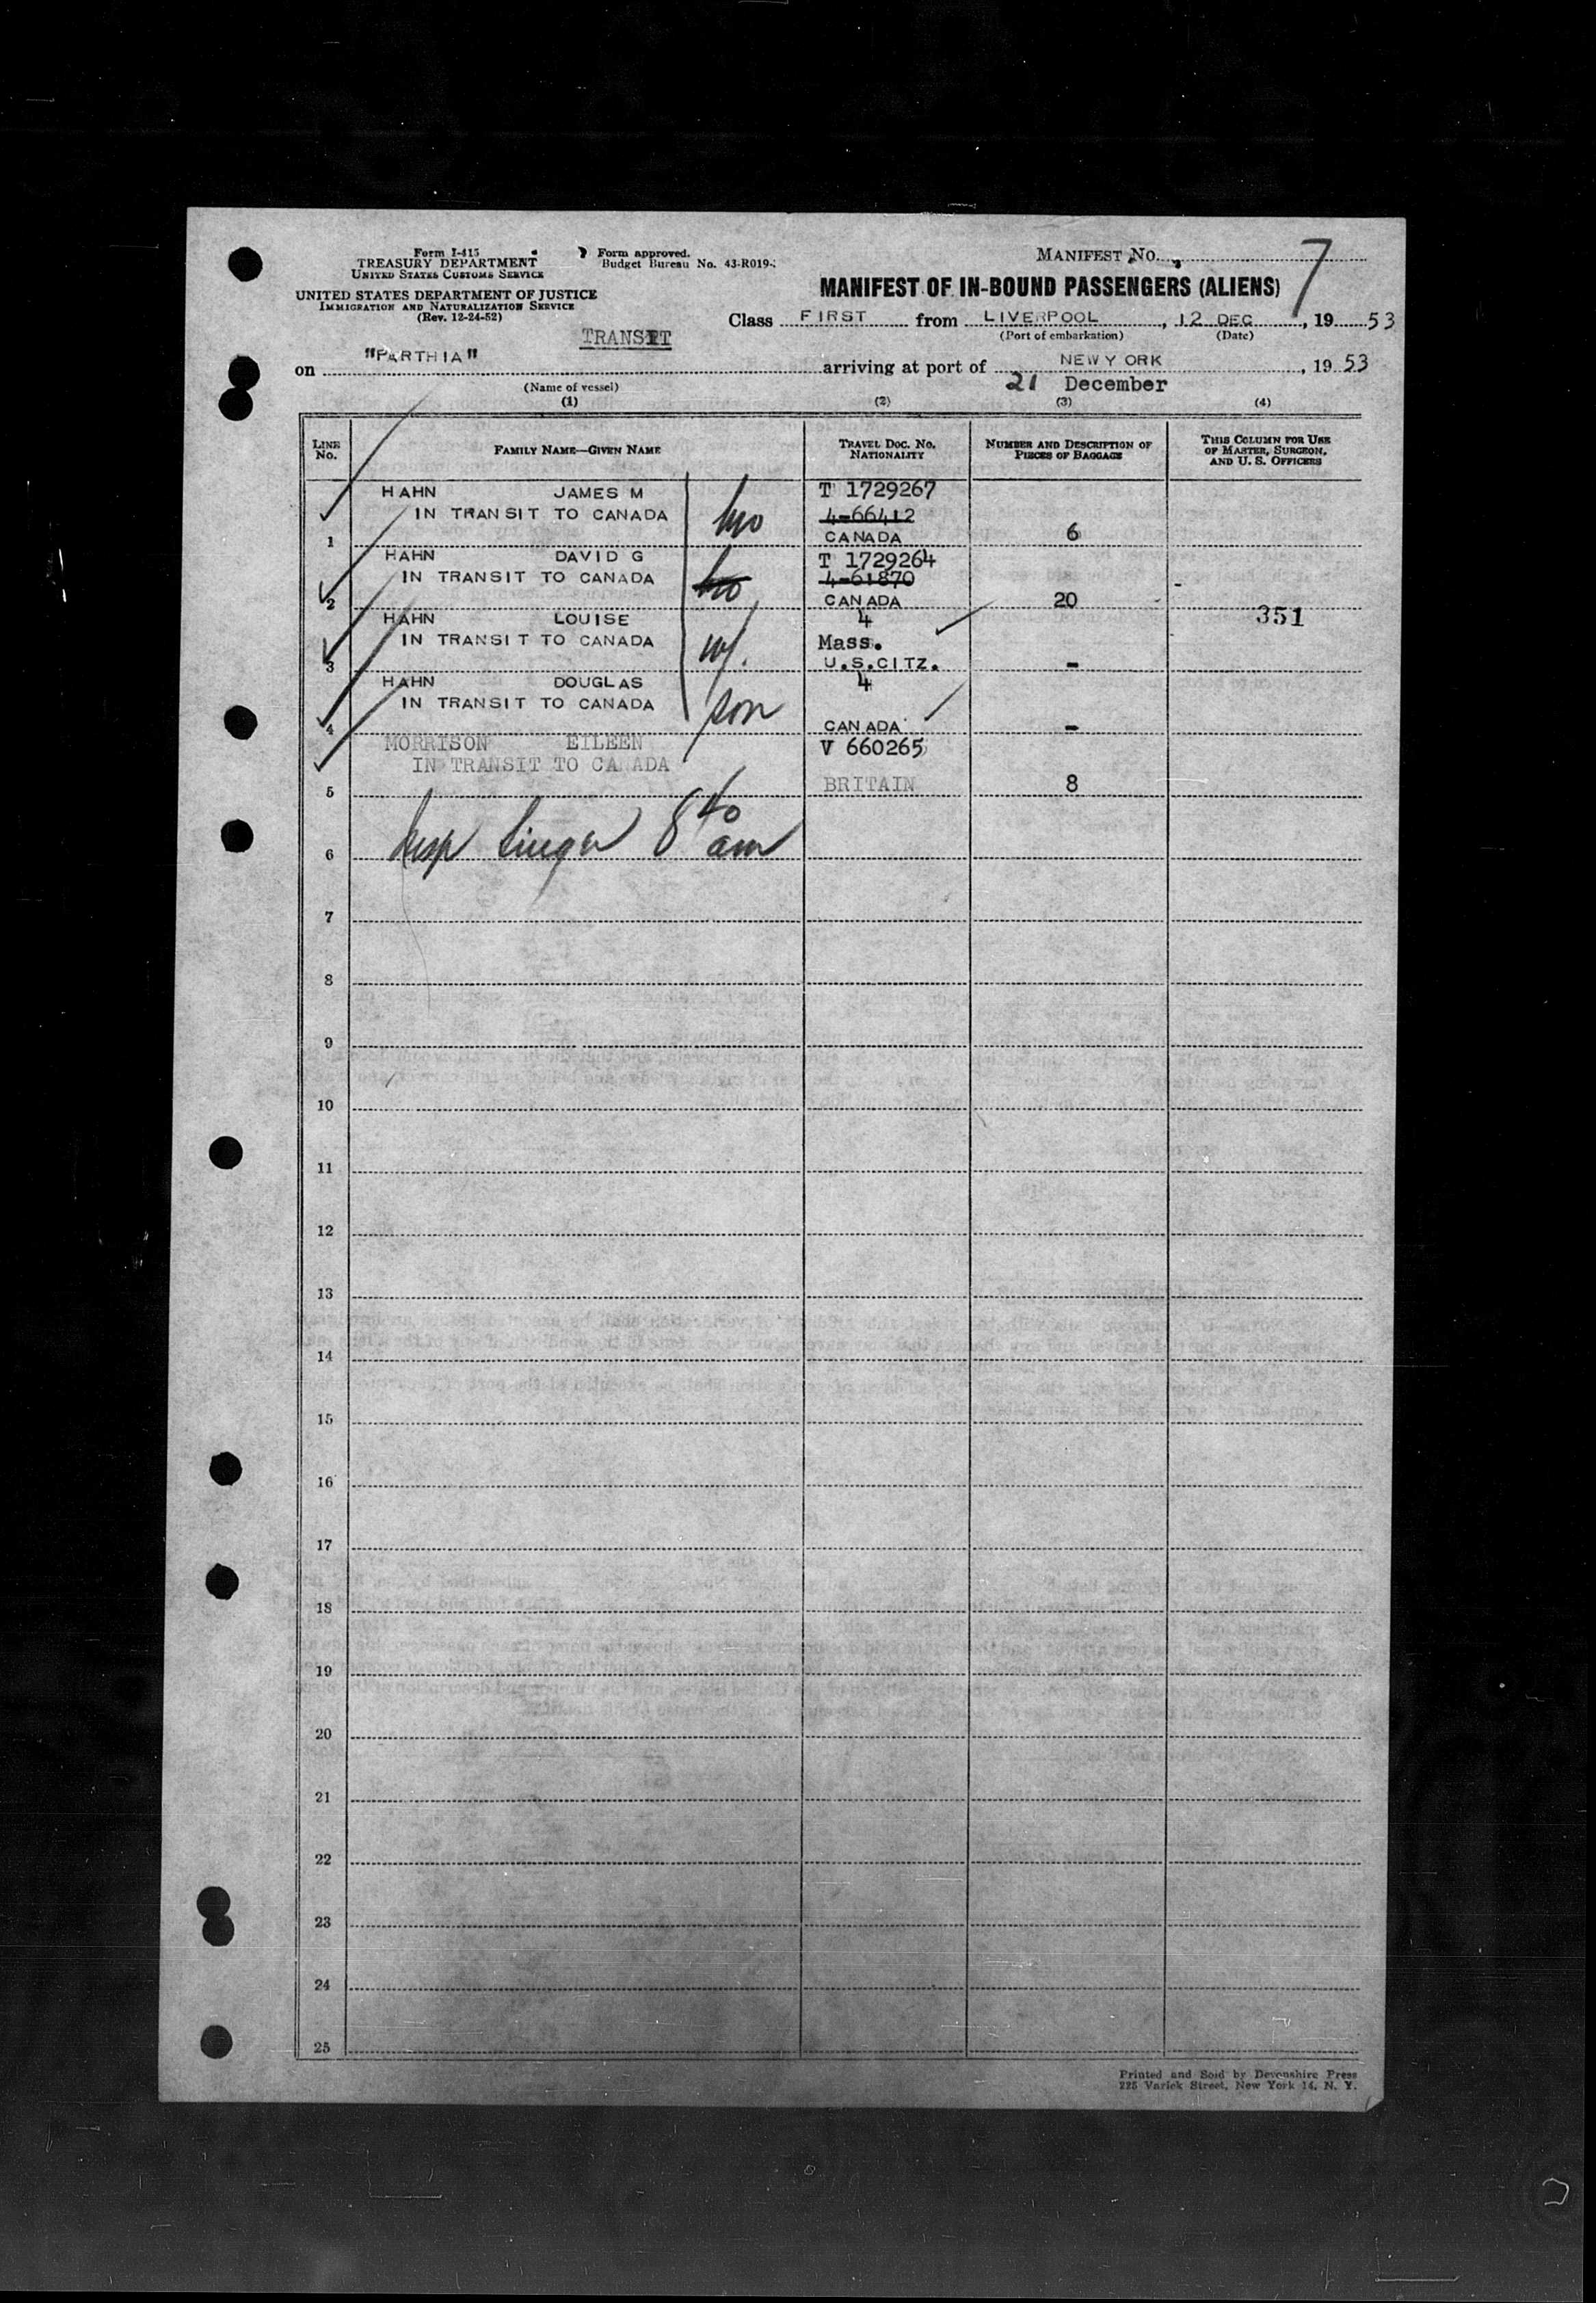 Form I-415
TREASURY DEPARTMENT
UNITED STATES CUSTOMS SERVICE
UNITED STATES DEPARTMENT OF JUSTICE
IMMIGRATION AND NATURALIZATION SERVICE
(Rev. 12-24-52)
Form approved.
Budget Bureau No. 43-R019-
MANIFEST NO. 7
MANIFEST OF IN-BOUND PASSENGERS (ALIENS)
Class FIRST from LIVERPOOL, 12 DEC, 1953
(Port of embarkation) (Date)
TRANSIT
on "PARTHIA" arriving at port of NEW YORK, 1953
21 December
(Name of vessel)
(1) (2) (3) (4)
LINE NO. FAMILY NAME—GIVEN NAME TRAVEL DOC. NO. NATIONALITY NUMBER AND DESCRIPTION OF PIECES OF BAGGAGE THIS COLUMN FOR USE OF MASTER, SURGEON, AND U. S. OFFICERS
HAHN JAMES M T 1729267
IN TRANSIT TO CANADA 4-66412
1 CANADA 6
HAHN DAVID G T 1729264
IN TRANSIT TO CANADA 4-61870
2 CANADA 20
HAHN LOUISE 4 351
IN TRANSIT TO CANADA w/. Mass.
3 U.S.CITZ. -
HAHN DOUGLAS 4
IN TRANSIT TO CANADA son
4 CANADA -
MORRISON EILEEN V 660265
IN TRANSIT TO CA ADA
5 BRITAIN 8
6 8 40 am
7
8
9
10
11
12
13
14
15
16
17
18
19
20
21
22
23
24
25
Printed and Sold by Devonshire Press
225 Varick Street, New York 14, N. Y.